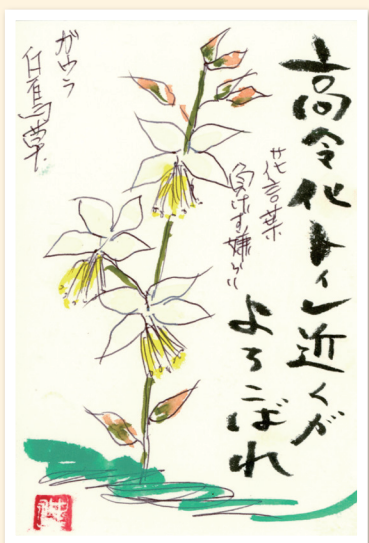 高令化トイレ近くが
よろこばれ
花言葉
負けず嫌い
ガウラ
白鳥草